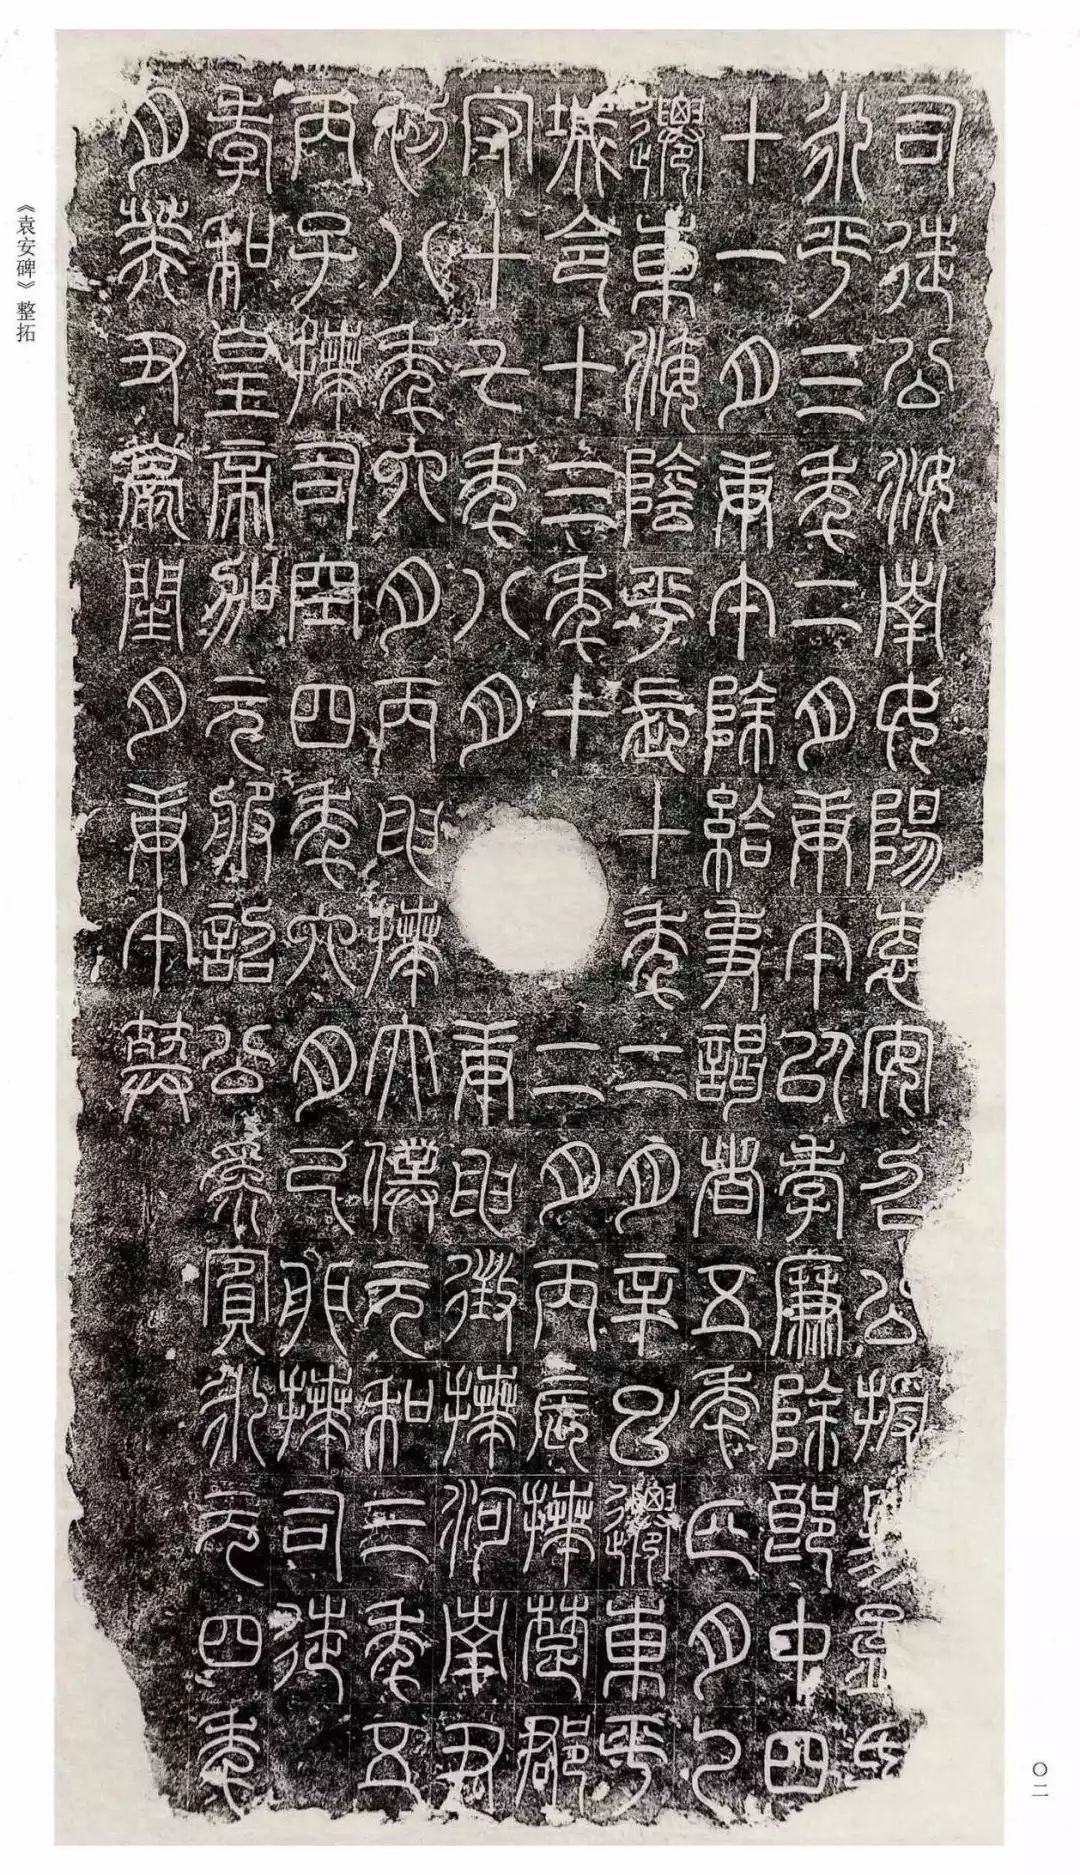 司徒公汝南女陽袁安召公授易孟氏
永平三年二月庚午以孝廉除郎中四
十一月庚午除給事謁者五年正月乙
遷東海陰平長十年二月辛巳遷東平
城令十三年十二月丙辰拜楚郡
守十七年八月庚申徵拜河南尹
初八年六月丙申拜太僕元和三年五
丙子拜司空四年六月己卯拜司徒
孝和皇帝加元服詔公為賓永元四年
月癸丑薨閏月庚午葬
《袁安碑》整拓
〇二